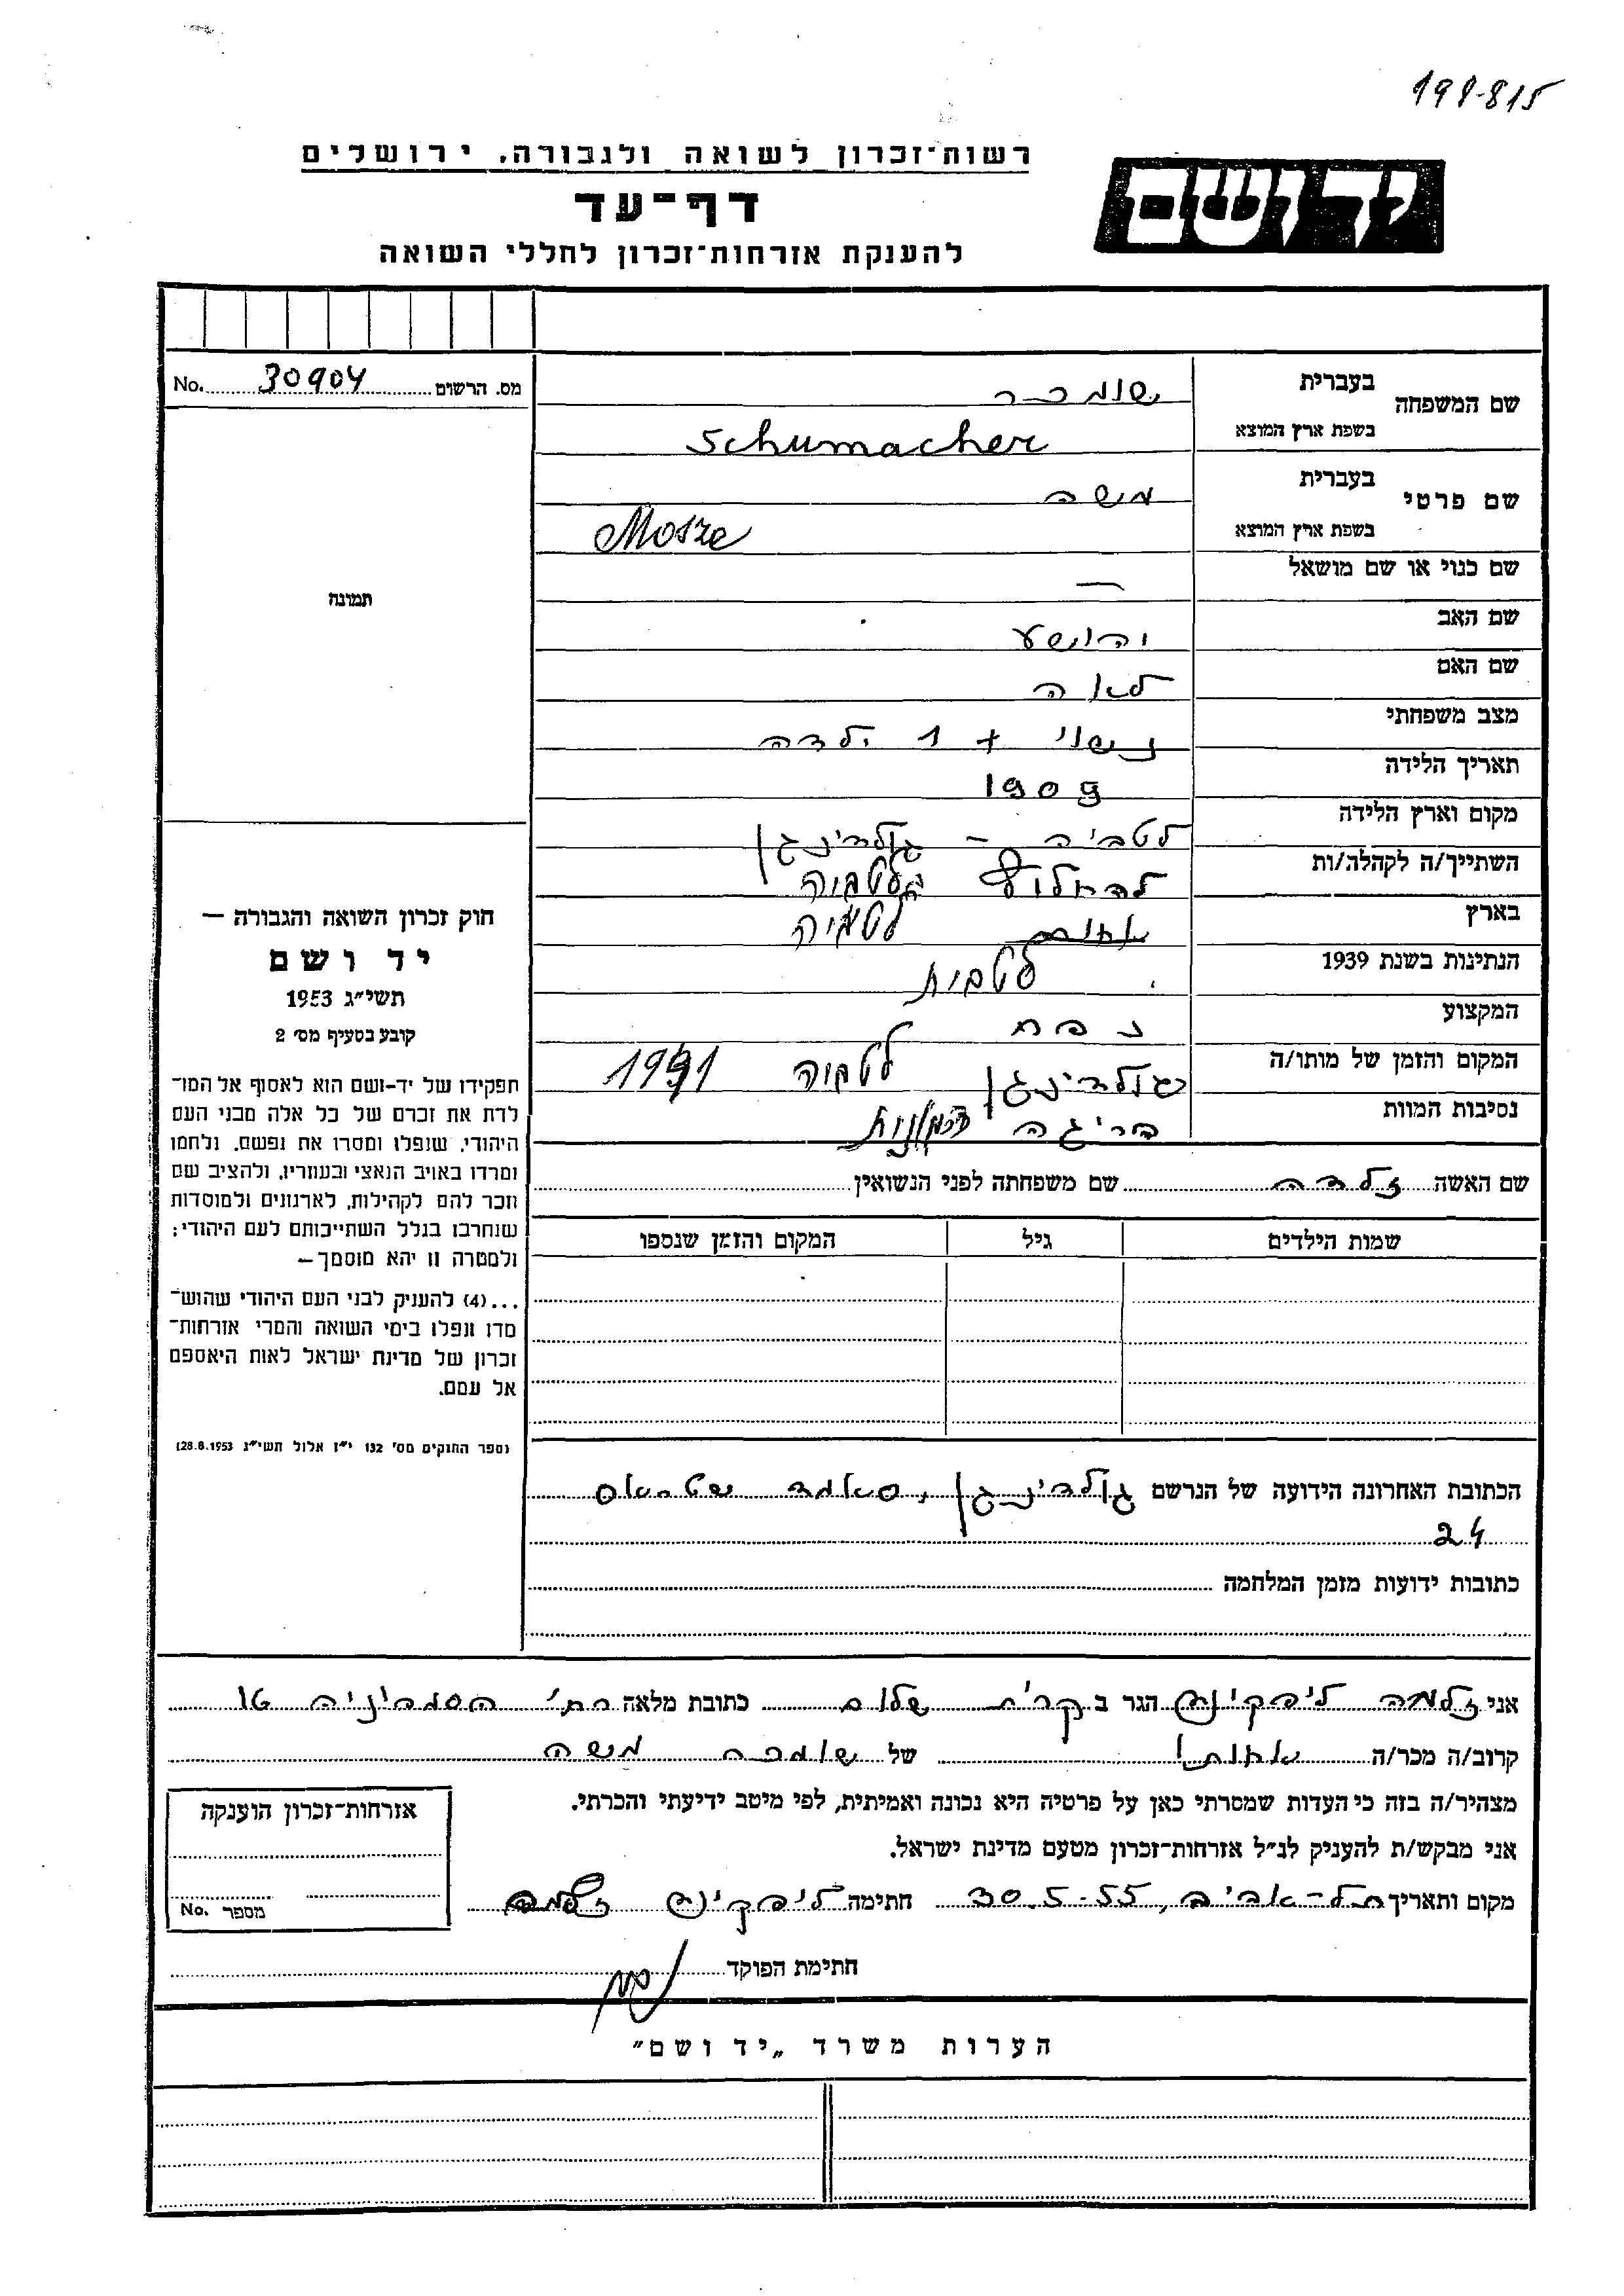 198-815
רשות־זכרון לשואה ולגבורה, ירושלים
יד ושם
דף־עד
להענקת אזרחות־זכרון לחללי השואה
No. 30904 מס. הרשום
שם המשפחה בעברית שומכר
בשפת ארץ המוצא Schumacher
שם פרטי בעברית משה
בשפת ארץ המוצא Mosze
שם כנוי או שם מושאל —
שם האב יהושע
שם האם לאה
מצב משפחתי נשוי + 1 ילדה
תאריך הלידה 1909
מקום וארץ הלידה לטביה - גולדינגן
השתייך/ה לקהלה/ות
בארץ לטביה
הנתינות בשנת 1939 לטבית
המקצוע נפח
המקום והזמן של מותו/ה גולדינגן לטביה 1941
נסיבות המוות הריגה
שם האשה זלדה שם משפחתה לפני הנשואין
שמות הילדים גיל המקום והזמן שנספו
הכתובת האחרונה הידועה של הנרשם גולדינגן, שטראס
24
כתובות ידועות מזמן המלחמה
תמונה
חוק זכרון השואה והגבורה —
יד ושם
תשי״ג 1953
קובע בסעיף מס׳ 2
תפקידו של יד-ושם הוא לאסוף אל המו־
לדת את זכרם של כל אלה מבני העם
היהודי, שנפלו ומסרו את נפשם, נלחמו
ומרדו באויב הנאצי ובעוזריו, ולהציב שם
וזכר להם לקהילות, לארגונים ולמוסדות
שנחרבו בגלל השתייכותם לעם היהודי;
ולמטרה זו יהא מוסמך—
...(4) להעניק לבני העם היהודי שהוש־
מדו ונפלו בימי השואה והמרי אזרחות־
זכרון של מדינת ישראל לאות היאספם
אל עמם.
(ספר החוקים מס׳ 132 י״ז אלול תשי״ג 28.8.1953)
אני זלמה ליפקינד הגר ב קרית שלום כתובת מלאה רח׳ 16
קרוב/ה מכר/ה אחותו של שומכר משה
מצהיר/ה בזה כי העדות שמסרתי כאן על פרטיה היא נכונה ואמיתית, לפי מיטב ידיעתי והכרתי.
אני מבקש/ת להעניק לנ״ל אזרחות־זכרון מטעם מדינת ישראל.
מקום ותאריך תל-אביב, 30.5.55 חתימה ליפקינד זלמה
חתימת הפוקד
אזרחות־זכרון הוענקה
No. מספר
הערות משרד „יד ושם״